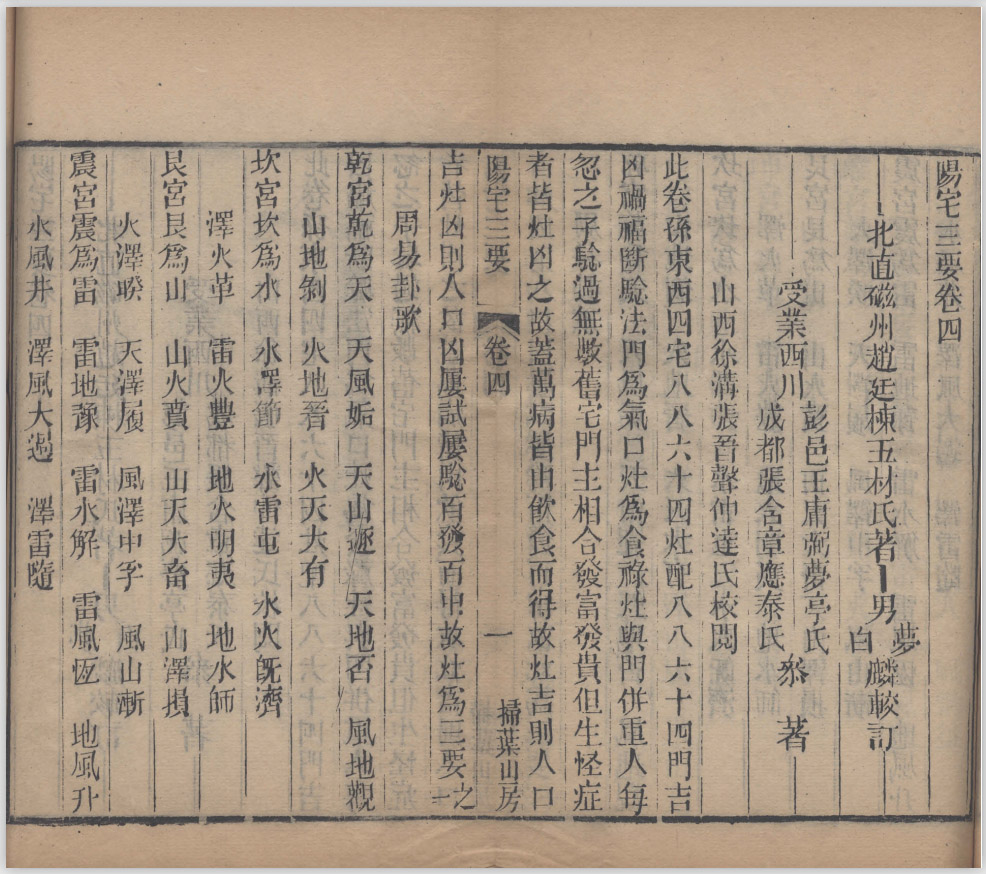 陽宅三要卷四
北直磁州趙廷棟玉材氏著 男 夢白 麟較訂
受業西川 彭邑王庸弼夢亭氏 成都張含章應泰氏 叅著
山西徐溝張晉聲仲達氏校閱
此卷孫東西四宅八八六十四灶配八八六十四門吉
凶禍福斷騐法門爲氣口灶爲食祿灶與門併重人每
忽之予騐過無數舊宅門主相合發富發貴但生怪症
者皆灶凶之故蓋萬病皆由飲食而得故灶吉則人口
陽宅三要 卷四 一 掃葉山房
吉灶凶則人口凶屢試屢騐百發百中故灶爲三要之一
周易卦歌
乾宮乾爲天 天風姤 天山遯 天地否 風地觀
山地剝 火地晉 火天大有
坎宮坎爲水 水澤節 水雷屯 水火旣濟
澤火革 雷火豐 地火明夷 地水師
艮宮艮爲山 山火賁 山天大畜 山澤損
火澤暌 天澤履 風澤中孚 風山漸
震宮震爲雷 雷地豫 雷水解 雷風恆 地風升
水風井 澤風大過 澤雷隨